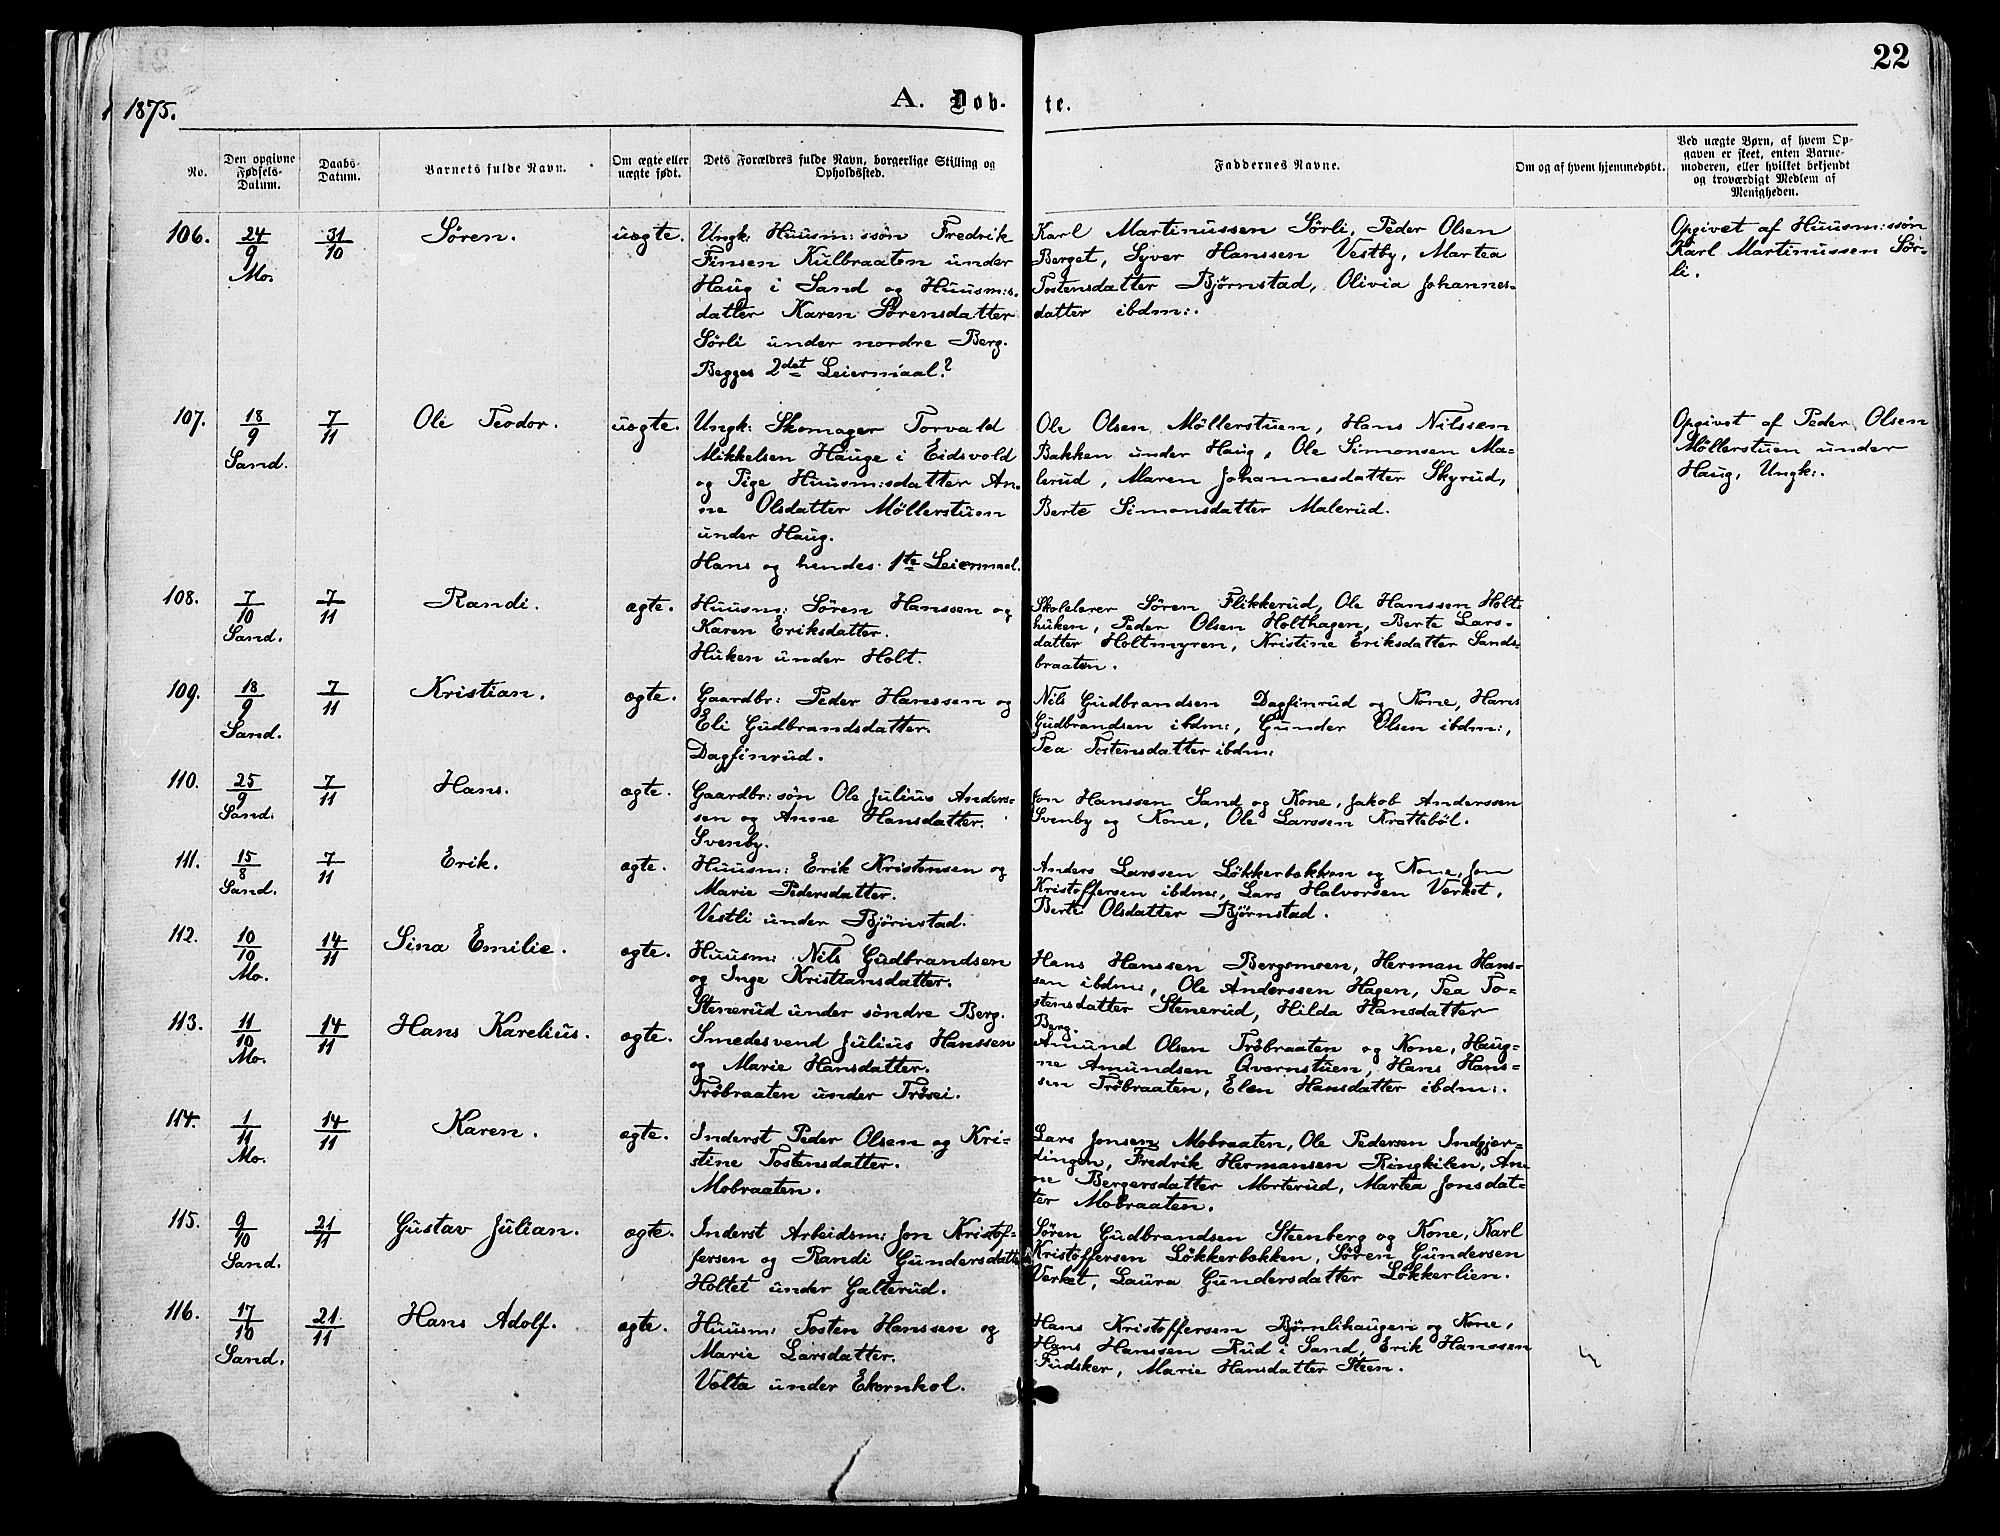 22
1875.
A. Døb-te.
No.
Den opgivne Fødsels-Datum.
Daabs-Datum.
Barnets fulde Navn.
Om ægte eller uægte født.
Dets Forældres fulde Navn, borgerlige Stilling og Opholdssted.
Faddernes Navne.
Om og af hvem hjemmedøbt.
Ved uægte Børn, af hvem Opgaven er skeet, enten Barnemoderen, eller hvilket bekjendt og troværdigt Medlem af Menigheden.
106. 24/9 Mo. 31/10 Søren. uægte.
Ungk: Huusm:ssøn Fredrik
Finsen Kulbraaten under
Haug i Sand og Huusm:s-
datter Karen Sørensdatter
Sørli under nordre Berg.
Begges 2det Leiermaal?
Karl Martinussen Sørli, Peder Olsen
Berget, Syver Hanssen Vestby, Martea
Tostensdatter Bjørnstad, Olivia Johannes-
datter ibdm:.
Opgivet af Huusm:ssøn
Karl Martinussen Sør-
li.
107. 18/9 Sand. 7/11 Ole Teodor. uægte.
Ungk: Skomager Torvald
Mikkelsen Hauge i Eidsvold
og Pige Huusm:sdatter An-
ne Olsdatter Møllerstuen
under Haug.
Hans og hendes 1te Leiermaal.
Ole Olsen Møllerstuen, Hans Nilssen
Bakken under Haug, Ole Simonsen Ma-
lerud, Maren Johannesdatter Skyrud,
Berte Simonsdatter Malerud.
Opgivet af Peder Olsen
Møllerstuen under
Haug, Ungk:.
108. 7/10 Sand. 7/11 Randi. ægte.
Huusm: Søren Hanssen og
Karen Eriksdatter.
Huken under Holt.
Skolelærer Søren Flikkerud, Ole Hanssen Holt-
huken, Peder Olsen Holthagen, Berte Lars-
datter Holtmyren, Kristine Eriksdatter Sands-
braaten.
109. 18/9 Sand. 7/11 Kristian. ægte.
Gaardbr: Peder Hanssen og
Eli Gudbrandsdatter.
Dagfinrud.
Nils Gudbrandsen Dagfinrud og Kone, Hans
Gudbrandsen ibdm:, Gunder Olsen ibdm:,
Tea Tostensdatter ibdm:
110. 25/9 Sand. 7/11 Hans. ægte.
Gaardbr:søn Ole Julius Anders-
sen og Anne Hansdatter.
Svenby.
Jon Hanssen Sand og Kone, Jakob Anderssen
Svenby og Kone, Ole Larssen Krattebøl.
111. 15/8 Sand. 7/11 Erik. ægte.
Huusm: Erik Kristensen og
Marie Pedersdatter.
Vestli under Bjørnstad.
Anders Larssen Løkkerbakken og Kone, Jon
Kristoffersen ibdm:, Lars Halvorsen Værket,
Berte Olsdatter Bjørnstad.
112. 10/10 Mo. 14/11 Sina Emilie. ægte.
Huusm: Nils Gudbrandsen
og Inge Kristiansdatter.
Stenerud under søndre Berg.
Hans Hanssen Bergsmoen, Herman Hans-
sen ibdm:, Ole Anderssen Hagen, Tea To-
stensdatter Stenerud, Hilda Hansdatter
Berg.
113. 11/10 Mo. 14/11 Hans Karelius. ægte.
Smedesvend Julius Hanssen
og Marie Hansdatter.
Trøbraaten under Trøsei.
Amund Olsen Trøbraaten og Kone, Haag-
ne Amundsen Qvernstuen, Hans Hans-
sen Trøbraaten, Elen Hansdatter ibdm:.
114. 1/11 Mo. 14/11 Karen. ægte.
Inderst Peder Olsen og Kri-
stine Tostensdatter.
Mobraaten.
Lars Jonsen Mobraaten, Ole Pedersen Indgjær-
dingen, Fredrik Hermansen Ringkilen, An-
ne Bergersdatter Morterud, Martea Jonsdat-
ter Mobraaten.
115. 9/10 Sand. 21/11 Gustav Julian. ægte.
Inderst Arbeidsm: Jon Kristof-
fersen og Randi Gundersdatter
Holtet under Galterud.
Søren Gudbrandsen Steenberg og Kone, Karl
Kristoffersen Løkkerbakken, Søren Gundersen
Værket, Laura Gundersdatter Løkkerlien.
116. 17/10 Sand. 21/11 Hans Adolf. ægte.
Huusm: Tosten Hanssen og
Marie Larsdatter.
Volta under Ekornhol.
Hans Kristoffersen Bjørnlihaugen og Kone,
Hans Hanssen Rud i Sand, Erik Hanssen
Fudsker, Marie Hansdatter Steen.